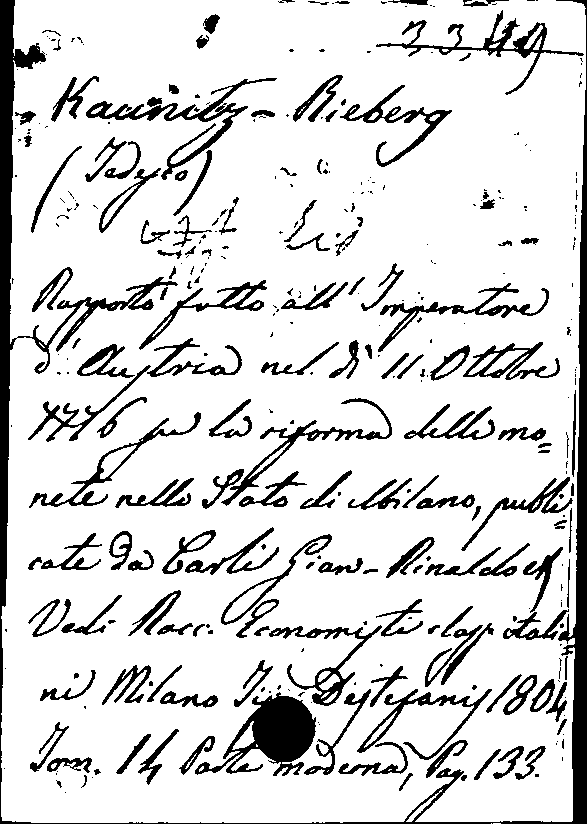 33,49
Kaunitz - Rieberg
(Tedesco)
Rapporto fatto all' Imperatore
d' Austria nel dì 11. Ottobre
1776 per la riforma delle mo=
nete nello Stato di Milano, publi=
cate da Carli Gian-Rinaldo
Vedi Racc. Economisti class. italia=
ni Milano Destefanis 1804,
Tom. 14 Parte moderna, Pag. 133.